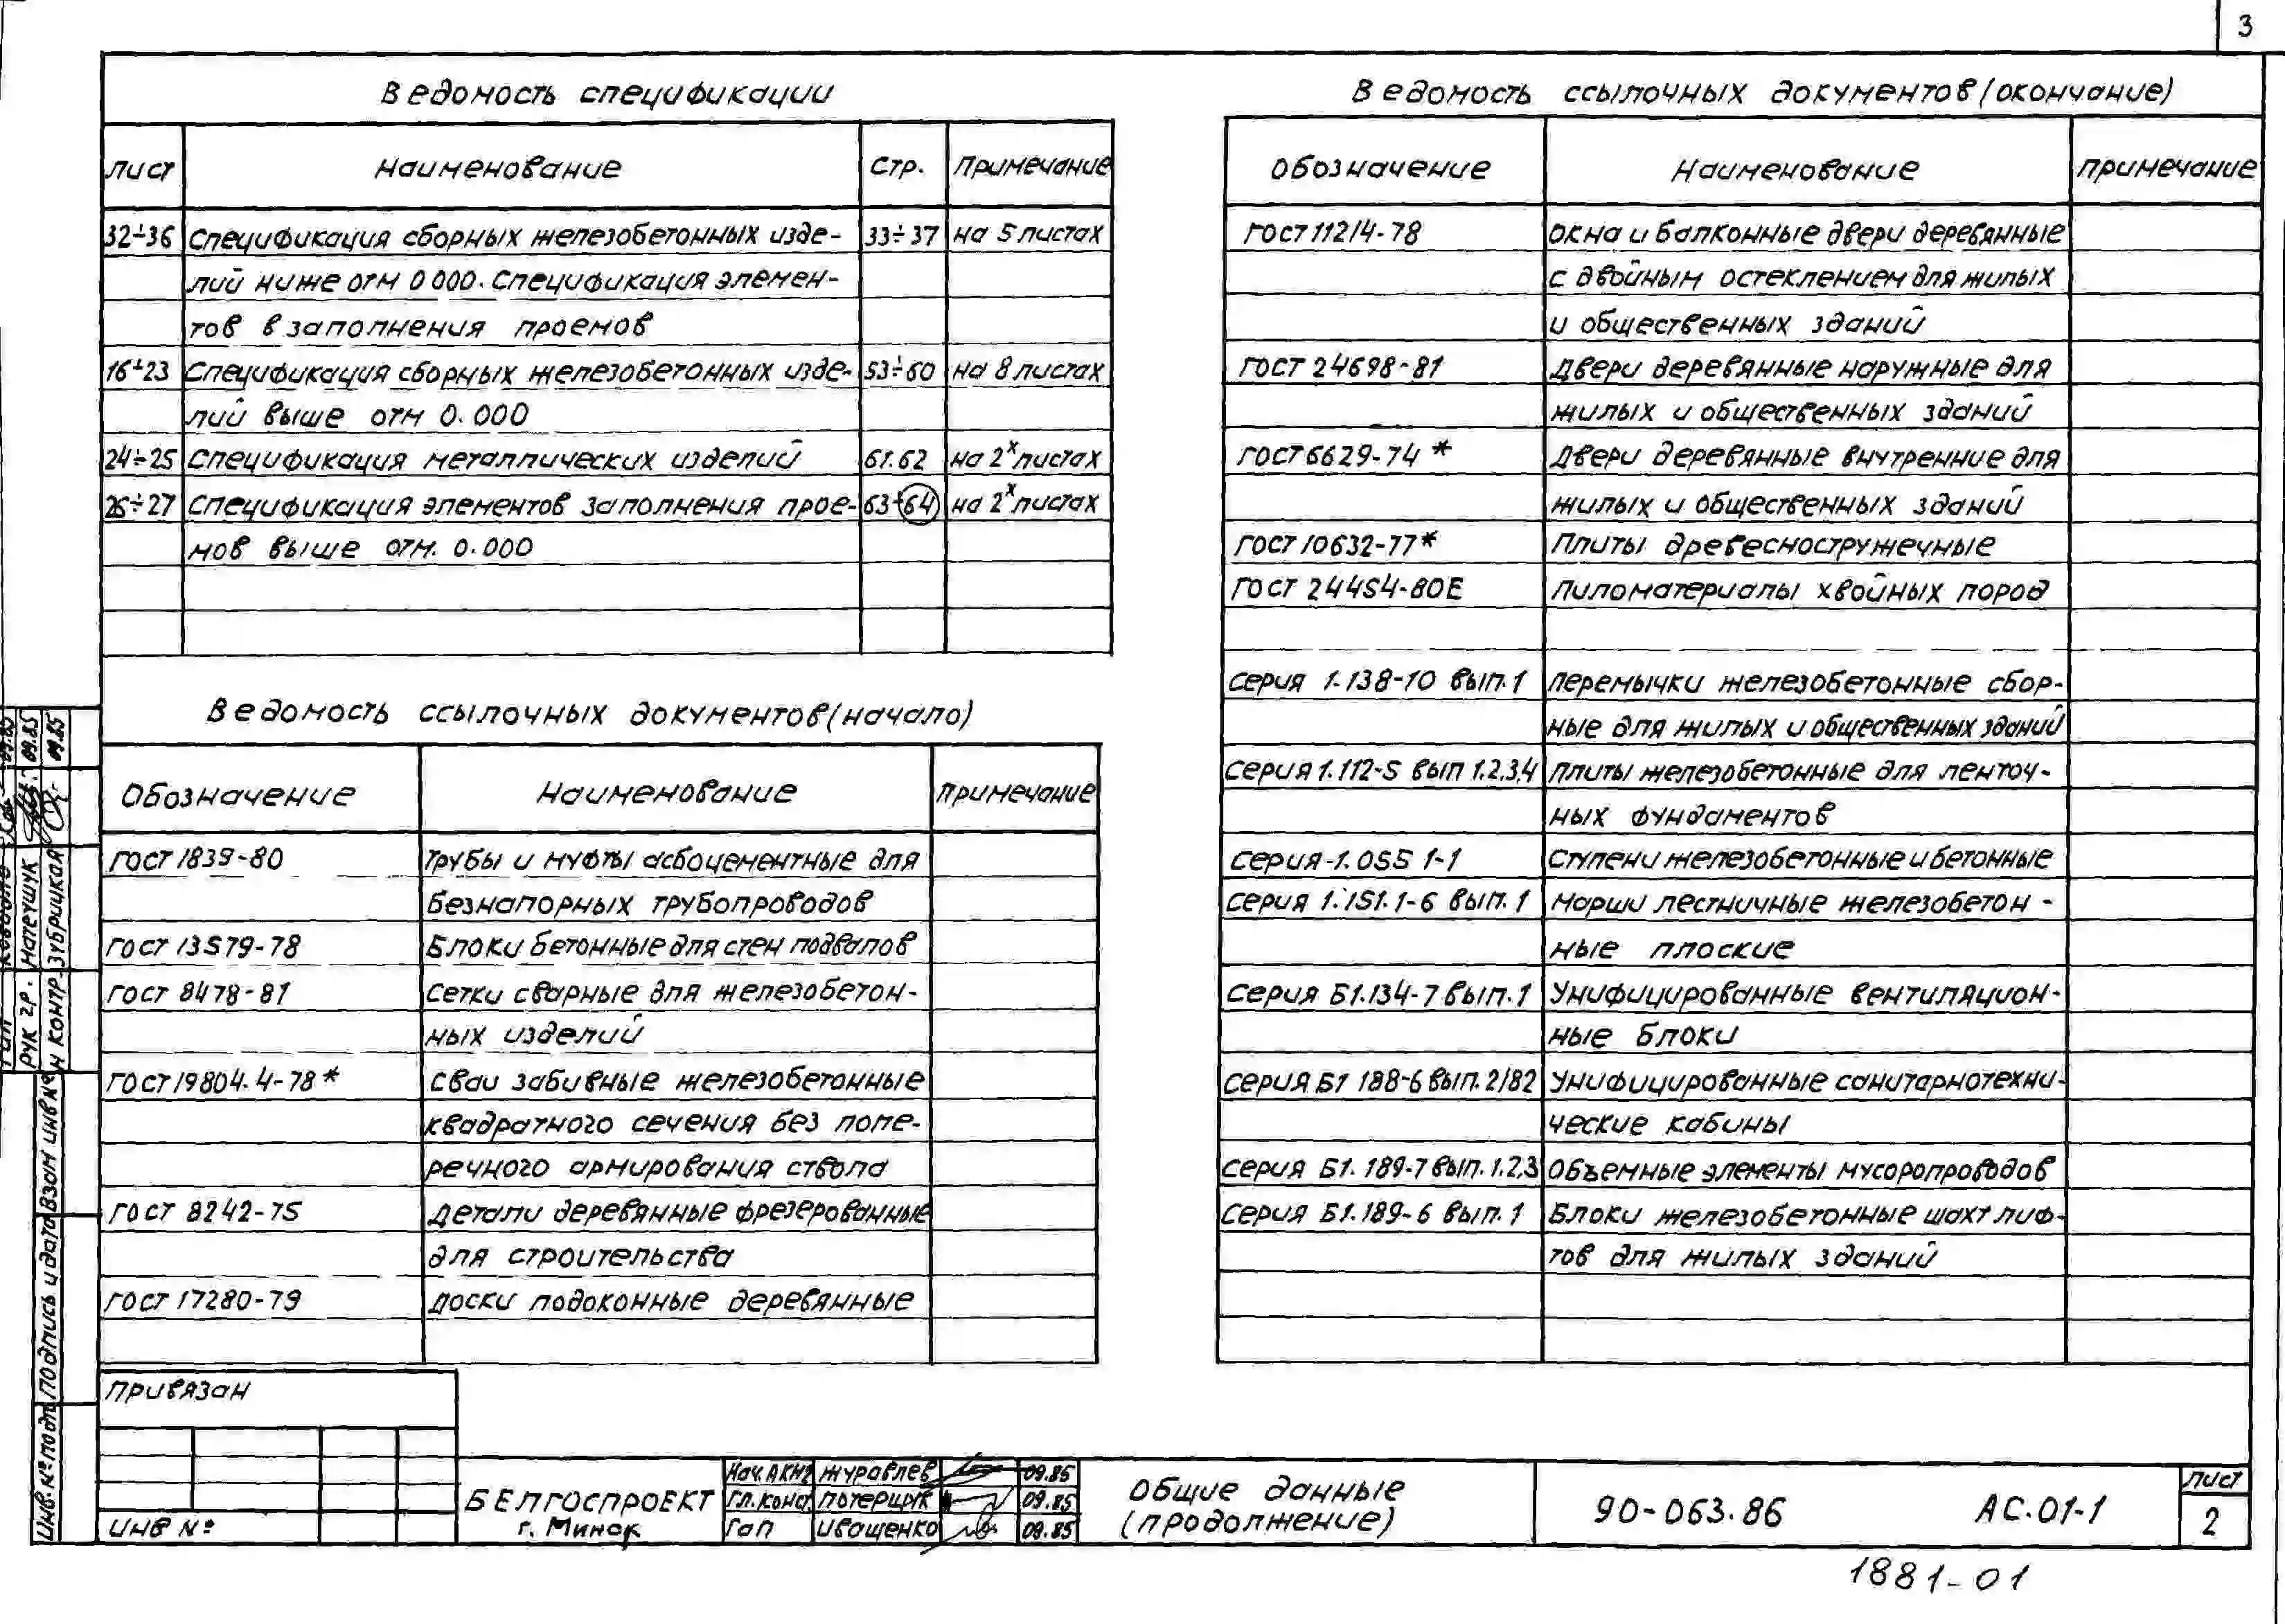 3
Ведомость спецификации
Лист Наименование Стр. Примечание
32÷36 Спецификация сборных железобетонных изде- 33÷37 на 5 листах
лий ниже отм 0 000. Спецификация элемен-
тов в заполнения проемов
16÷23 Спецификация сборных железобетонных изде- 53÷60 на 8 листах
лий выше отм 0.000
24÷25 Спецификация металлических изделий 61.62 на 2х листах
26÷27 Спецификация элементов заполнения прое- 63÷64 на 2х листах
мов выше отм. 0.000
Ведомость ссылочных документов (начало)
Обозначение Наименование Примечание
ГОСТ 1839-80 Трубы и муфты асбоцементные для
безнапорных трубопроводов
ГОСТ 13579-78 Блоки бетонные для стен подвалов
ГОСТ 8478-81 Сетки сварные для железобетон-
ных изделий
ГОСТ 19804.4-78* Сваи забивные железобетонные
квадратного сечения без попе-
речного армирования ствола
ГОСТ 8242-75 Детали деревянные фрезерованные
для строительства
ГОСТ 17280-79 Доски подоконные деревянные
Ведомость ссылочных документов (окончание)
Обозначение Наименование Примечание
ГОСТ 11214-78 Окна и балконные двери деревянные
с двойным остеклением для жилых
и общественных зданий
ГОСТ 24698-81 Двери деревянные наружные для
жилых и общественных зданий
ГОСТ 6629-74* Двери деревянные внутренние для
жилых и общественных зданий
ГОСТ 10632-77* Плиты древесностружечные
ГОСТ 24454-80Е Пиломатериалы хвойных пород
Серия 1.138-10 вып.1 Перемычки железобетонные сбор-
ные для жилых и общественных зданий
Серия 1.112-5 вып 1.2,3,4 Плиты железобетонные для ленточ-
ных фундаментов
Серия-1.055 1-1 Ступени железобетонные и бетонные
Серия 1.151.1-6 вып.1 Марши лестничные железобетон-
ные плоские
Серия Б1.134-7 вып.1 Унифицированные вентиляцион-
ные блоки
Серия Б1 188-6 вып.2/82 Унифицированные санитарнотехни-
ческие кабины
Серия Б1.189-7 вып.1.2,3 Объемные элементы мусоропроводов
Серия Б1.189-6 вып.1 Блоки железобетонные шахт лиф-
тов для жилых зданий
Рук гр. Матещук 09.85
Н контр. Зубрицкая 09.85
Взам инв №
Подпись и дата
Инв. № подл
Привязан
Инв №
БЕЛГОСПРОЕКТ
г. Минск
Нач. АКМ2 Журавлев 09.85
Гл. конс. Потерщук 09.85
Гап Иващенко 09.85
Общие данные
(продолжение)
90-063.86 АС.01-1
Лист
2
1881-01